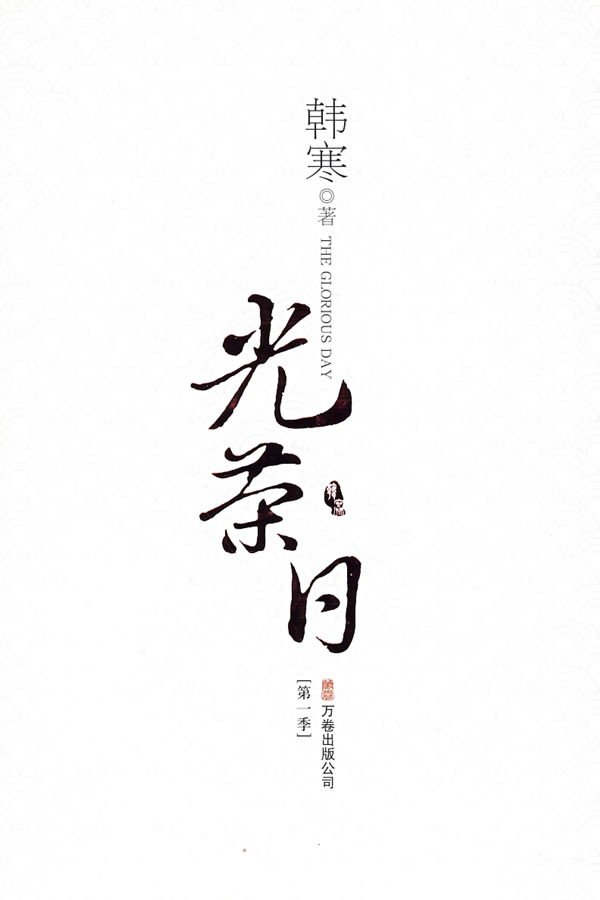 韩寒◎著
THE GLORIOUS DAY
光荣日
[第一季]
万卷出版公司